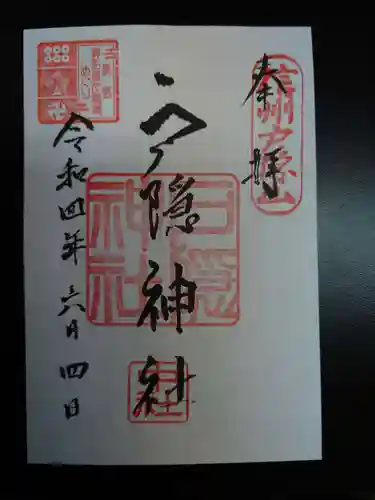 奉拝
信州戸隠山
戸隠神社
戸隠神社
令和四年六月四日